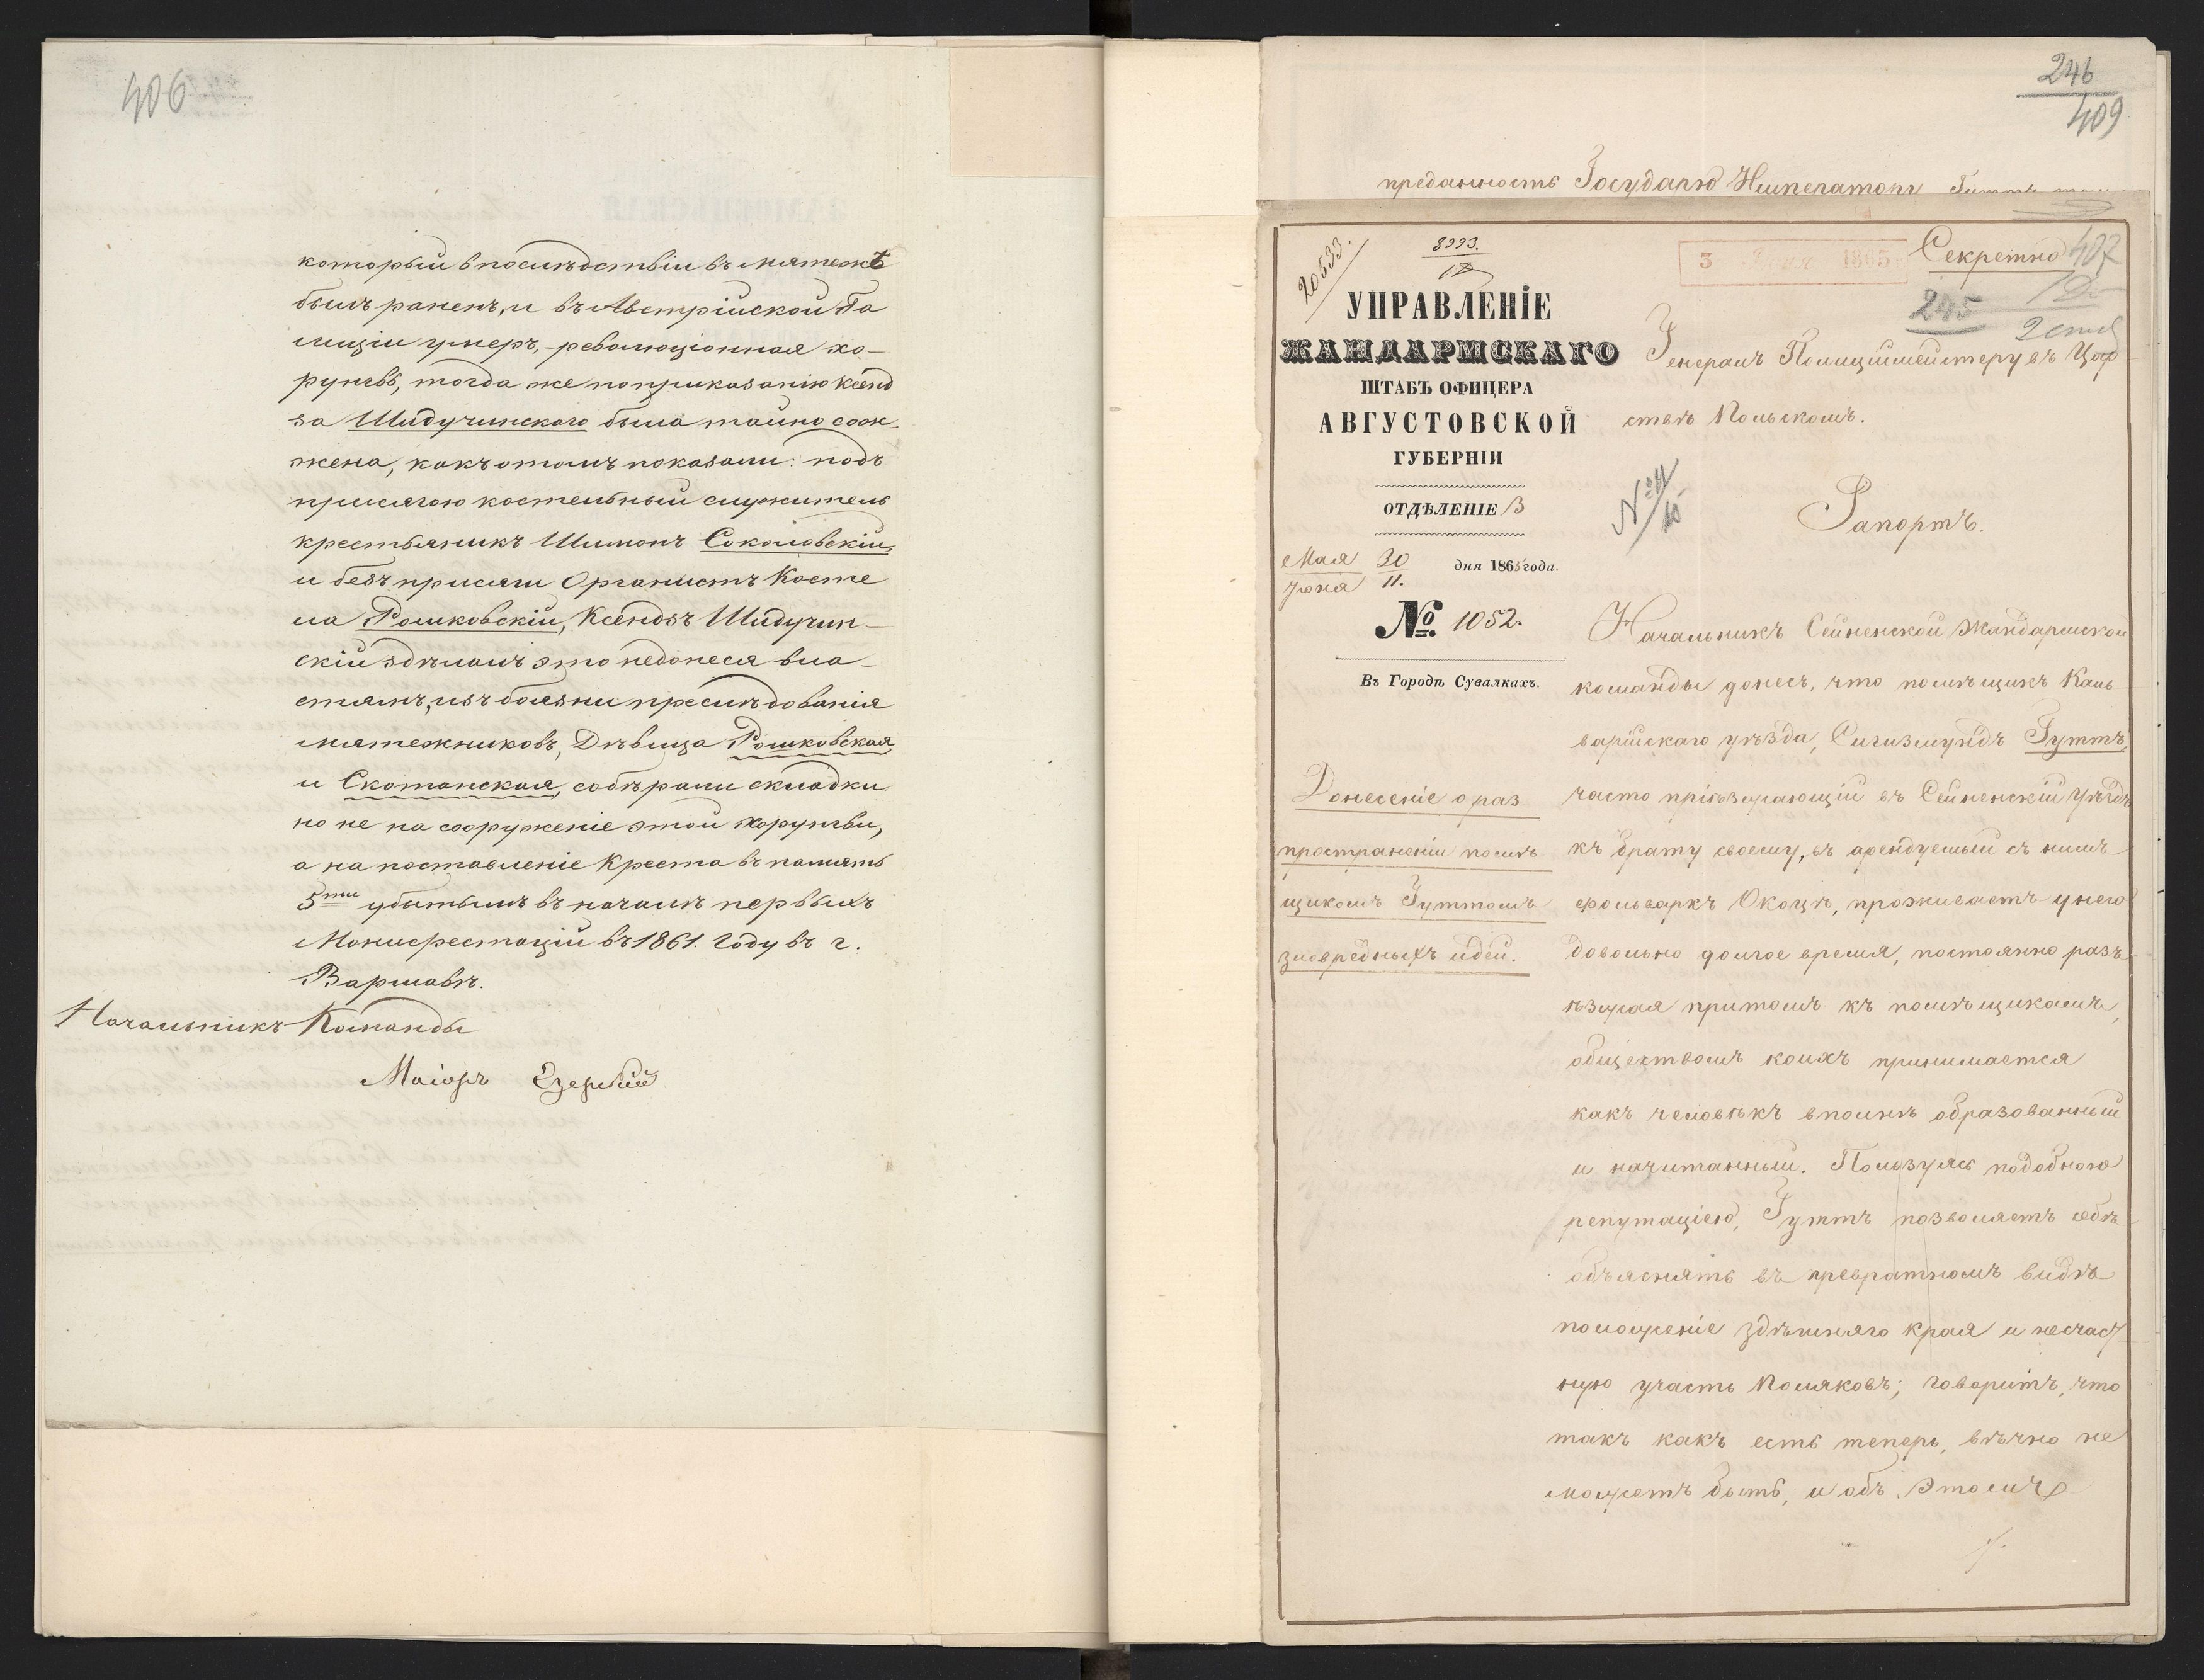 406
который впослѣдствіи въ мятежѣ
былъ раненъ, и въ Австрійской Га
лиціи умеръ, - революціонная хо-
ругвь, тогда же по приказанію Ксенд
за Шидучинскаго была тайно сож-
жена, какъ о томъ показали: подъ
присягою костельный служитель
крестьянинъ Шимонъ Соколовскій,
и безъ присяги Органистъ Косте
ла Рошковскій, Ксендзъ Шидучин-
скій зделалъ это недонеся вла-
стямъ, изъ боязни преслѣдованія
мятежниковъ, Дѣвица Рошковская,
и Скотанская, собѣрали складки
но не на сооруженіе этой хоругви,
а на поставленіе Креста въ память
5ти убитымъ въ началѣ первыхъ
Монифестацій въ 1861. году въ г.
Варшавѣ.
Начальникъ Команды
Маіоръ
246
409
преданность Государю Императору
20533.
3993.
3 1865
Секретно
407
245
УПРАВЛЕНІЕ
ЖАНДАРМСКАГО
ШТАБЪ ОФИЦЕРА
АВГУСТОВСКОЙ
ГУБЕРНІИ
ОТДѢЛЕНІЕ В
Мая 30 дня 1865 года.
Іюня 11.
№ 1052.
Въ Городѣ Сувалкахъ.
Генералъ Полиціймейстеру въ Цар
ствѣ Польскомъ.
Рапортъ.
Донесеніе о раз
пространеніи помѣ
щикомъ Гуттомъ
зловредныхъ идей.
Начальникъ Сейненской Жандармской
команды донесъ, что помѣщикъ Каль
варійскаго уѣзда, Сигизмундъ Гуттъ,
часто пріѣзжающій въ Сейненскій Уѣздъ
къ брату своему, въ арендуемый съ нимъ
фольваркъ Окоцѣ, проживаетъ у него
довольно долгое время, постоянно разъ
ѣзжая притомъ къ помѣщикамъ,
обществомъ коихъ принимается
какъ человѣкъ вполнѣ образованный
и начитанный. Пользуясь подобною
репутаціею, Гуттъ позволяетъ себѣ
объяснять въ превратномъ видѣ
положеніе здѣшняго края и несчаст
ную участь Поляковъ; говоритъ, что
такъ какъ есть теперь, вѣчно не
можетъ быть, и объ этомъ